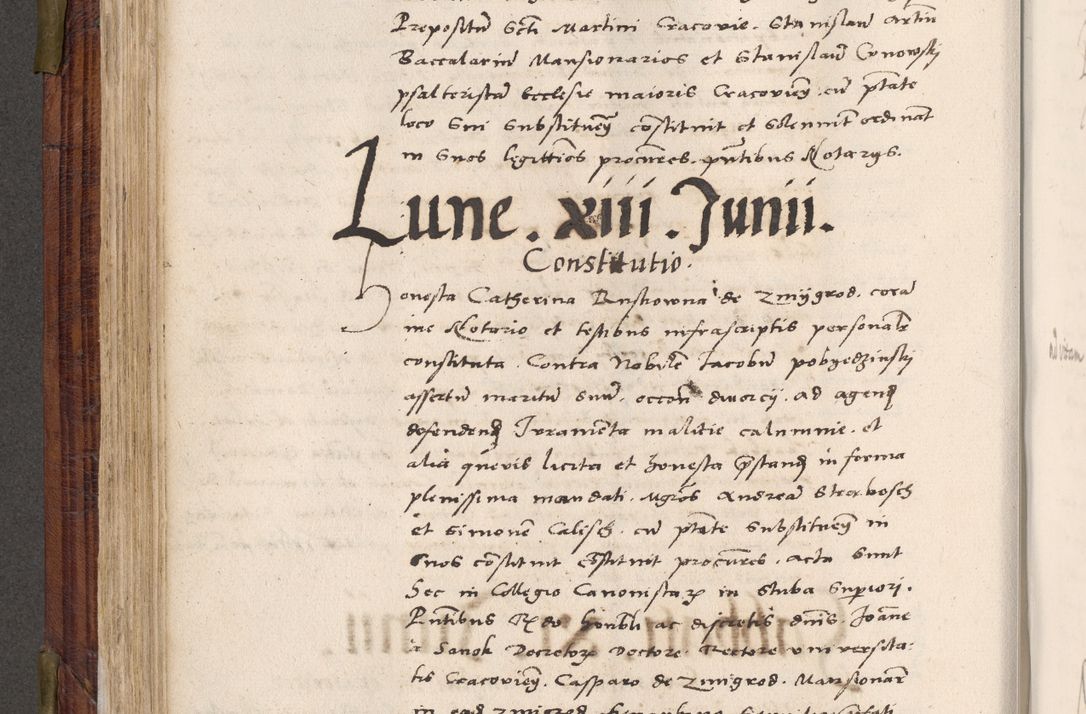 Prepositū Scti Martini Cracovie. Stanislaū artiū
Baccalariū Mansionarios et Stanislaū Cunowski
psalteristā Ecclesie maioris Cracovień. cū ptāte
loco Sui Substituēn constituit et Solenniť ordinat
in Suos legittīos procūres. pñtibus Notarys.
Lune. xiiii. Junii.
Constitutio.
Honesta Catherina de Zmijgrod. corā
me Notario et testibus infrascriptis personalr
constituta. Contra Nobilē Iacobū pobyedzinski
assertū maritū suū. occōn divorcij. ad agenđ
defendenđ Iuramēta malitie calumnie. et
alia quevis licita et honesta p̄standū in forma
plenissima mandati. Mgrōs Andreā
et Simonē Calisch. cū ptāte Substituēn in
Suos cōstituit procūres. acta sunt
Hec in Collegio Canonistarꝝ in stuba Supiori.
Pñtibus honbli ac discretis dn̄is. Ioāne
a Sanok Decretorꝝ Doctore. Rectore universita-
tis Cracovień. Casparo de Zmigrod. Mansionar